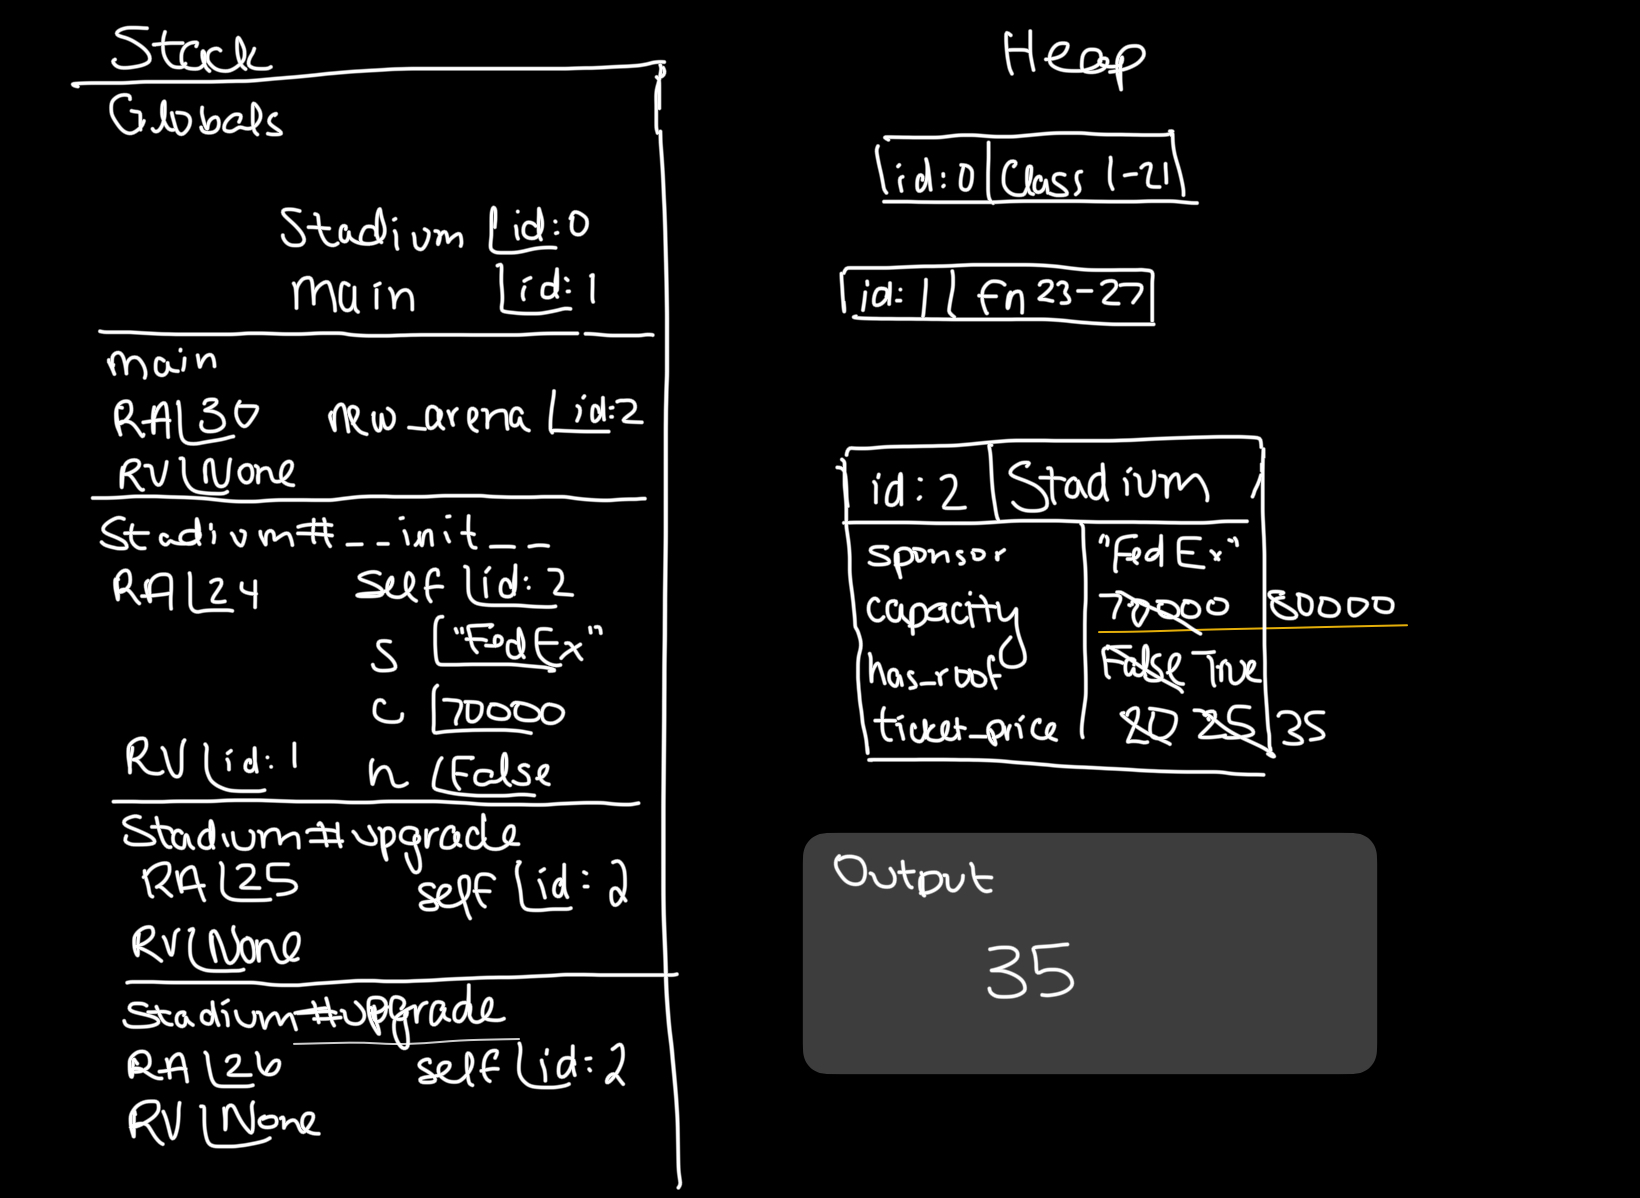 Stack
Globals
Stadium id:0
main id:1
main
RA 30 new_arena id:2
RV None
Stadium#__init__
RA 24 self id:2
s "FedEx"
c 70000
RV id:1 h False
Stadium#upgrade
RA 25 self id:2
RV None
Stadium#upgrade
RA 26 self id:2
RV None
Heap
id:0 Class 1-21
id:1 fn 23-27
id:2 Stadium
sponsor "FedEx"
capacity 70000 80000
has_roof False True
ticket_price 20 25 35
Output
35